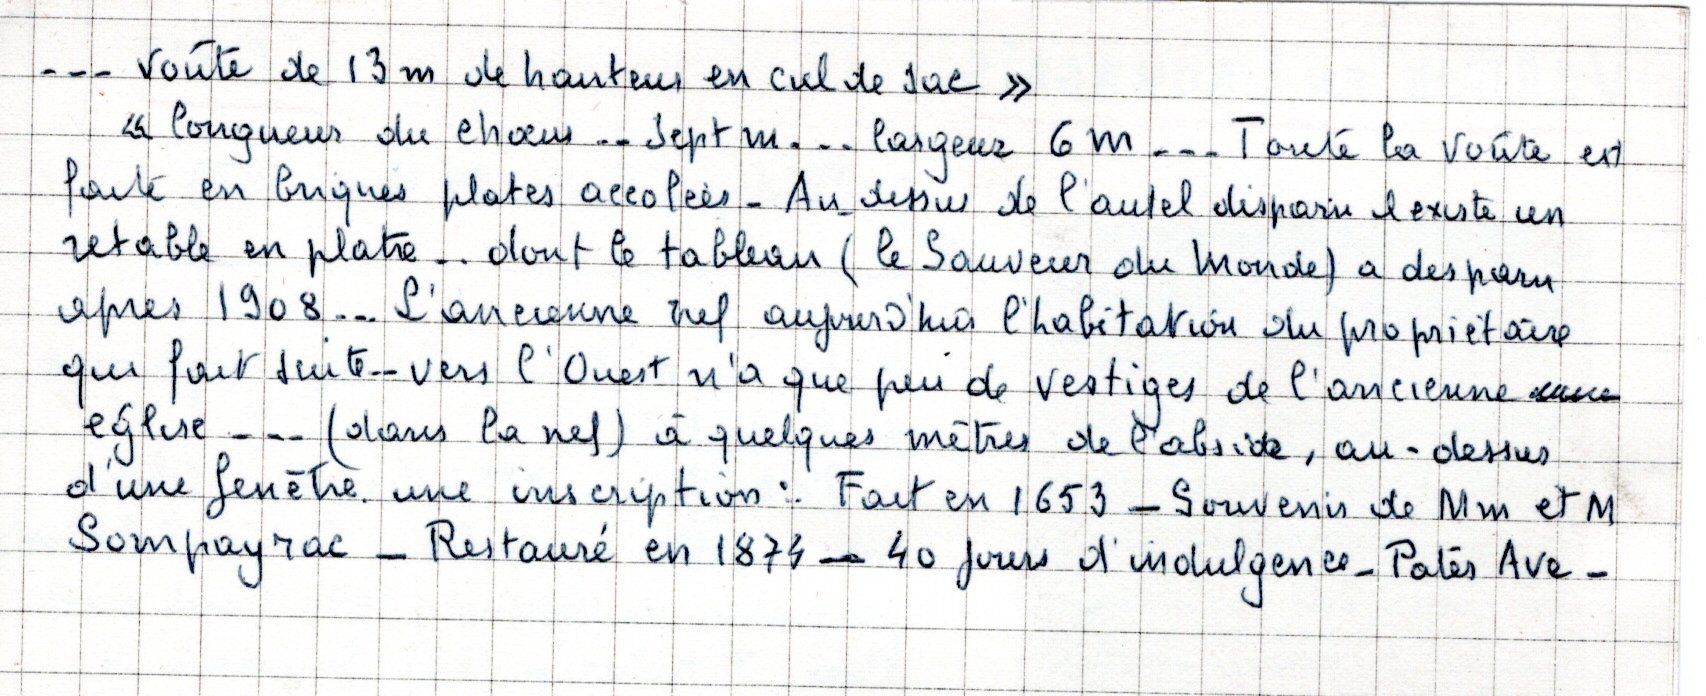 --- voûte de 13 m de hauteur en cul de sac »
« longueur du chœur -- sept m. .. largeur 6 m --- Toute la voûte est
faite en briques plates accolées - Au dessus de l'autel disparu il existe un
retable en platre .. dont le tableau ( le Sauveur du Monde) a desparu
apres 1908 ... L'ancienne nef aujourd'hui l'habitation du propriétaire
qui fait suite -- vers l'Ouest n'a que peu de vestiges de l'ancienne
église --- (dans la nef) à quelques mètres de l'abside, au-dessus
d'une fenêtre. une inscription : Fait en 1653 - Souvenir de Mm et M
Sompayrac - Restauré en 1874 - 40 jours d'indulgence - Pater Ave -